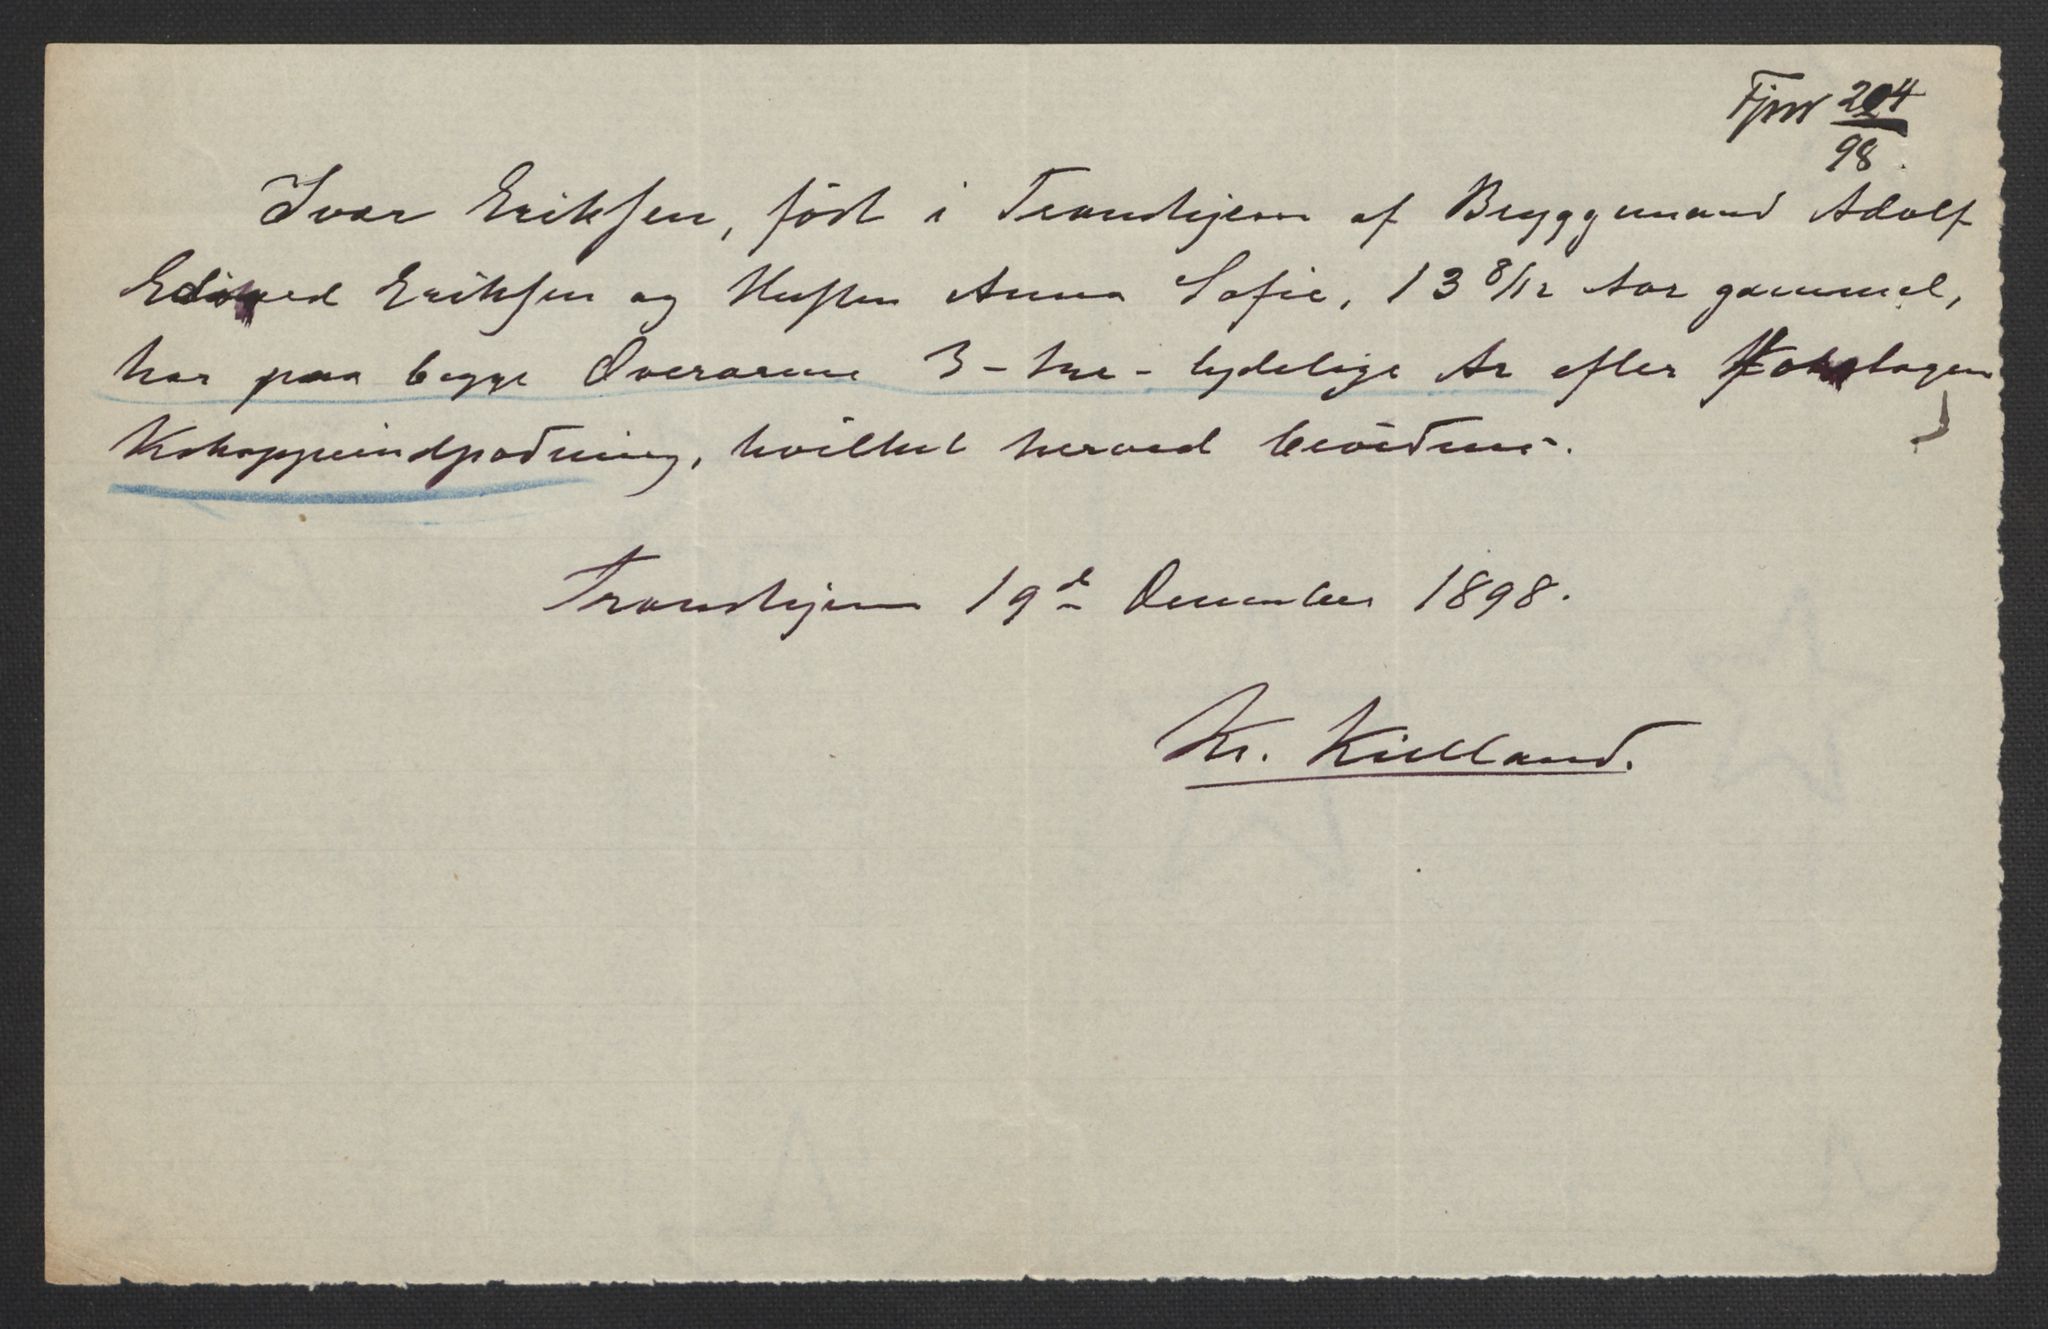 Fjnr 204
98.
Ivar Eriksen, født i Trondhjem af Bryggemand Adolf
Edvard Eriksen og Hustru Anna Sofie, 13 8/12 Aar gammel,
har paa begge Overarme 3 - tre - tydelige Ar efter foretagen
Kokoppeindpodning, hvilket herved bevidnes.
Trondhjem 19de December 1898.
Kr. Kielland.